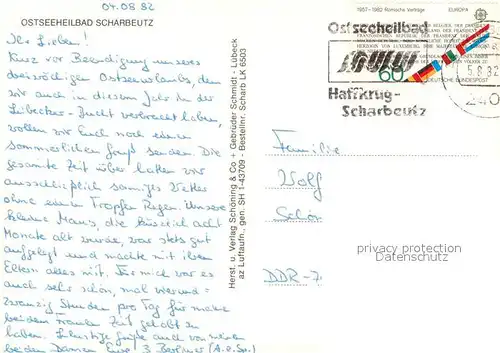 04.08.82
OSTSEEHEILBAD SCHARBEUTZ
Ihr Lieben!
Kurz vor Beendigung unseres
dreiwöchigen Ostseeurlaubs, den
wir auch in diesem Jahr in der
Lübecker-Bucht verbracht haben,
wollen wir Euch noch einen
sommerlichen Gruß senden. Die
gesamte Zeit über hatten wir
ausschließlich sonniges Wetter
ohne einen Tropfen Regen. Unsere
kleine Maus, die kürzlich acht
Monate alt wurde, war stets gut
aufgelegt und machte mit ihren
Eltern alles mit. Für mich war es
auch sehr schön, mal vierund-
zwanzig Stunden pro Tag für meine
beiden Frauen Zeit gehabt zu
haben. Sonnige Grüße auch von meinen
beiden Damen Eure 3 Berliner
Herst. u. Verlag Schöning & Co + Gebrüder Schmidt - Lübeck
az Luftaufn., gen. SH 1-43709 - Bestellnr. Scharb LK 6503
1957-1982 Römische Verträge EUROPA
60
DEUTSCHE BUNDESPOST
Ostseeheilbad
Haffkrug-
Scharbeutz
-5.8.82
240
Familie
Wolf
Schön
DDR-7
privacy protection
Datenschutz